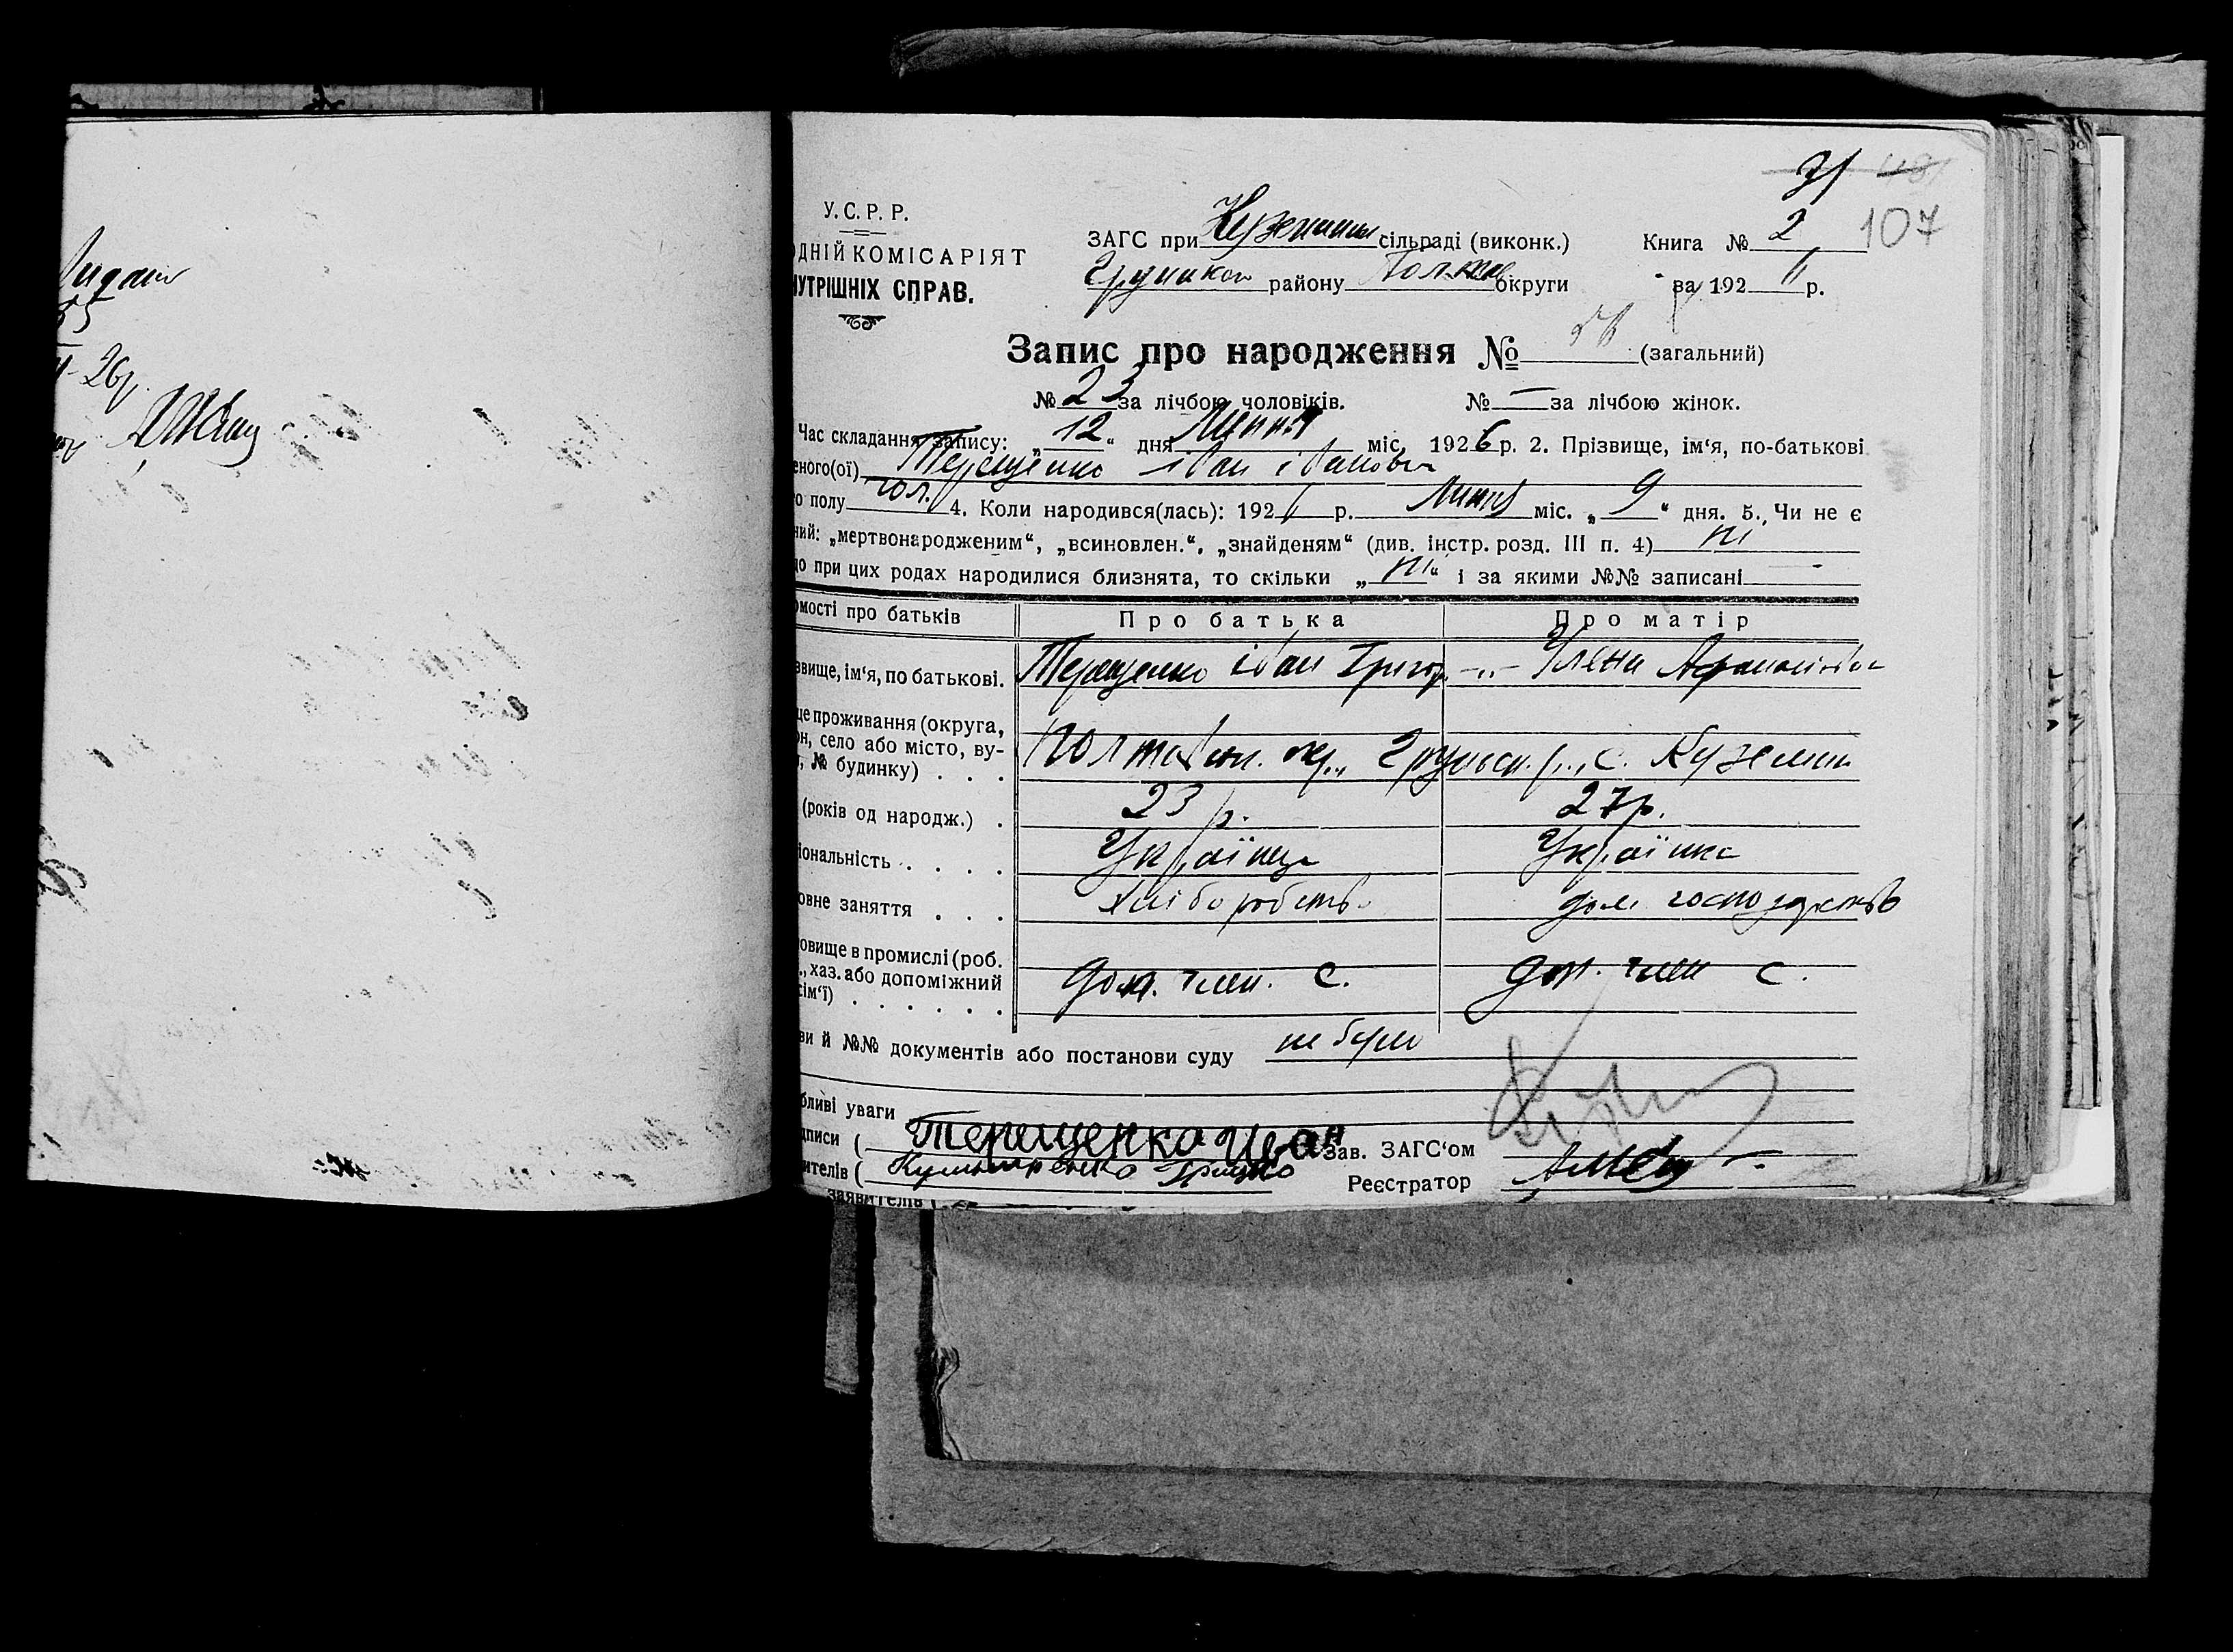 107
У. С. Р. Р.
ОДНІЙ КОМІСАРІЯТ
НУТРІШНІХ СПРАВ.
ЗАГС при сільраді (виконк.)
Книга № 2
району округи
за 192 р.
Запис про народження № (загальний)
№ 23 за лічбою чоловіків. № — за лічбою жінок.
Час складання запису: „12“ дня Липня міс. 1926 р. 2. Прізвище, ім‘я, по-батькові
еного(ої) Терещенко іван іванович
о полу чол. 4. Коли народився(лась): 192 р. Липня міс. „9“ дня. 5. Чи не є
ний: „мертвонародженим“, „всиновлен.“, „знайденям“ (див. інстр. розд. III п. 4) ні
до при цих родах народилися близнята, то скільки „ні“ і за якими №№ записані —
омості про батьків
Про батька
Про матір
звище, ім‘я, по батькові.
Терещенко іван Григор.
-„- Уляна
це проживання (округа,
он, село або місто, ву-
, № будинку) . . .
Полтавськ. окр., Грунськ. р., с. Куземин
(років од народж.) .
23 р.
27 р.
іональність . . . .
Українець
Українка
овне заняття . . .
Хліборобство
дом. господарство
овище в промислі (роб.
., хаз. або допоміжний
сім‘ї) . . . . . .
доп. член. с.
доп. член с.
ви й №№ документів або постанови суду не було
бливі уваги
дписи ( Терещенко Иван
Зав. ЗАГС‘ом
ителів ( Грицко
Реєстратор
заявителів (
26р.